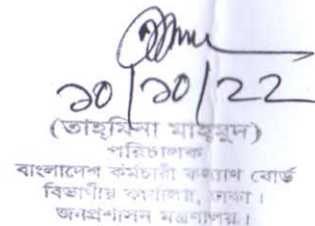 ১০/১০/22
(তাহমিনা মাহমুদ)
পরিচালক
বাংলাদেশ কর্মচারী কল্যাণ বোর্ড
বিভাগীয় কার্যালয়, ঢাকা।
জনপ্রশাসন মন্ত্রণালয়।